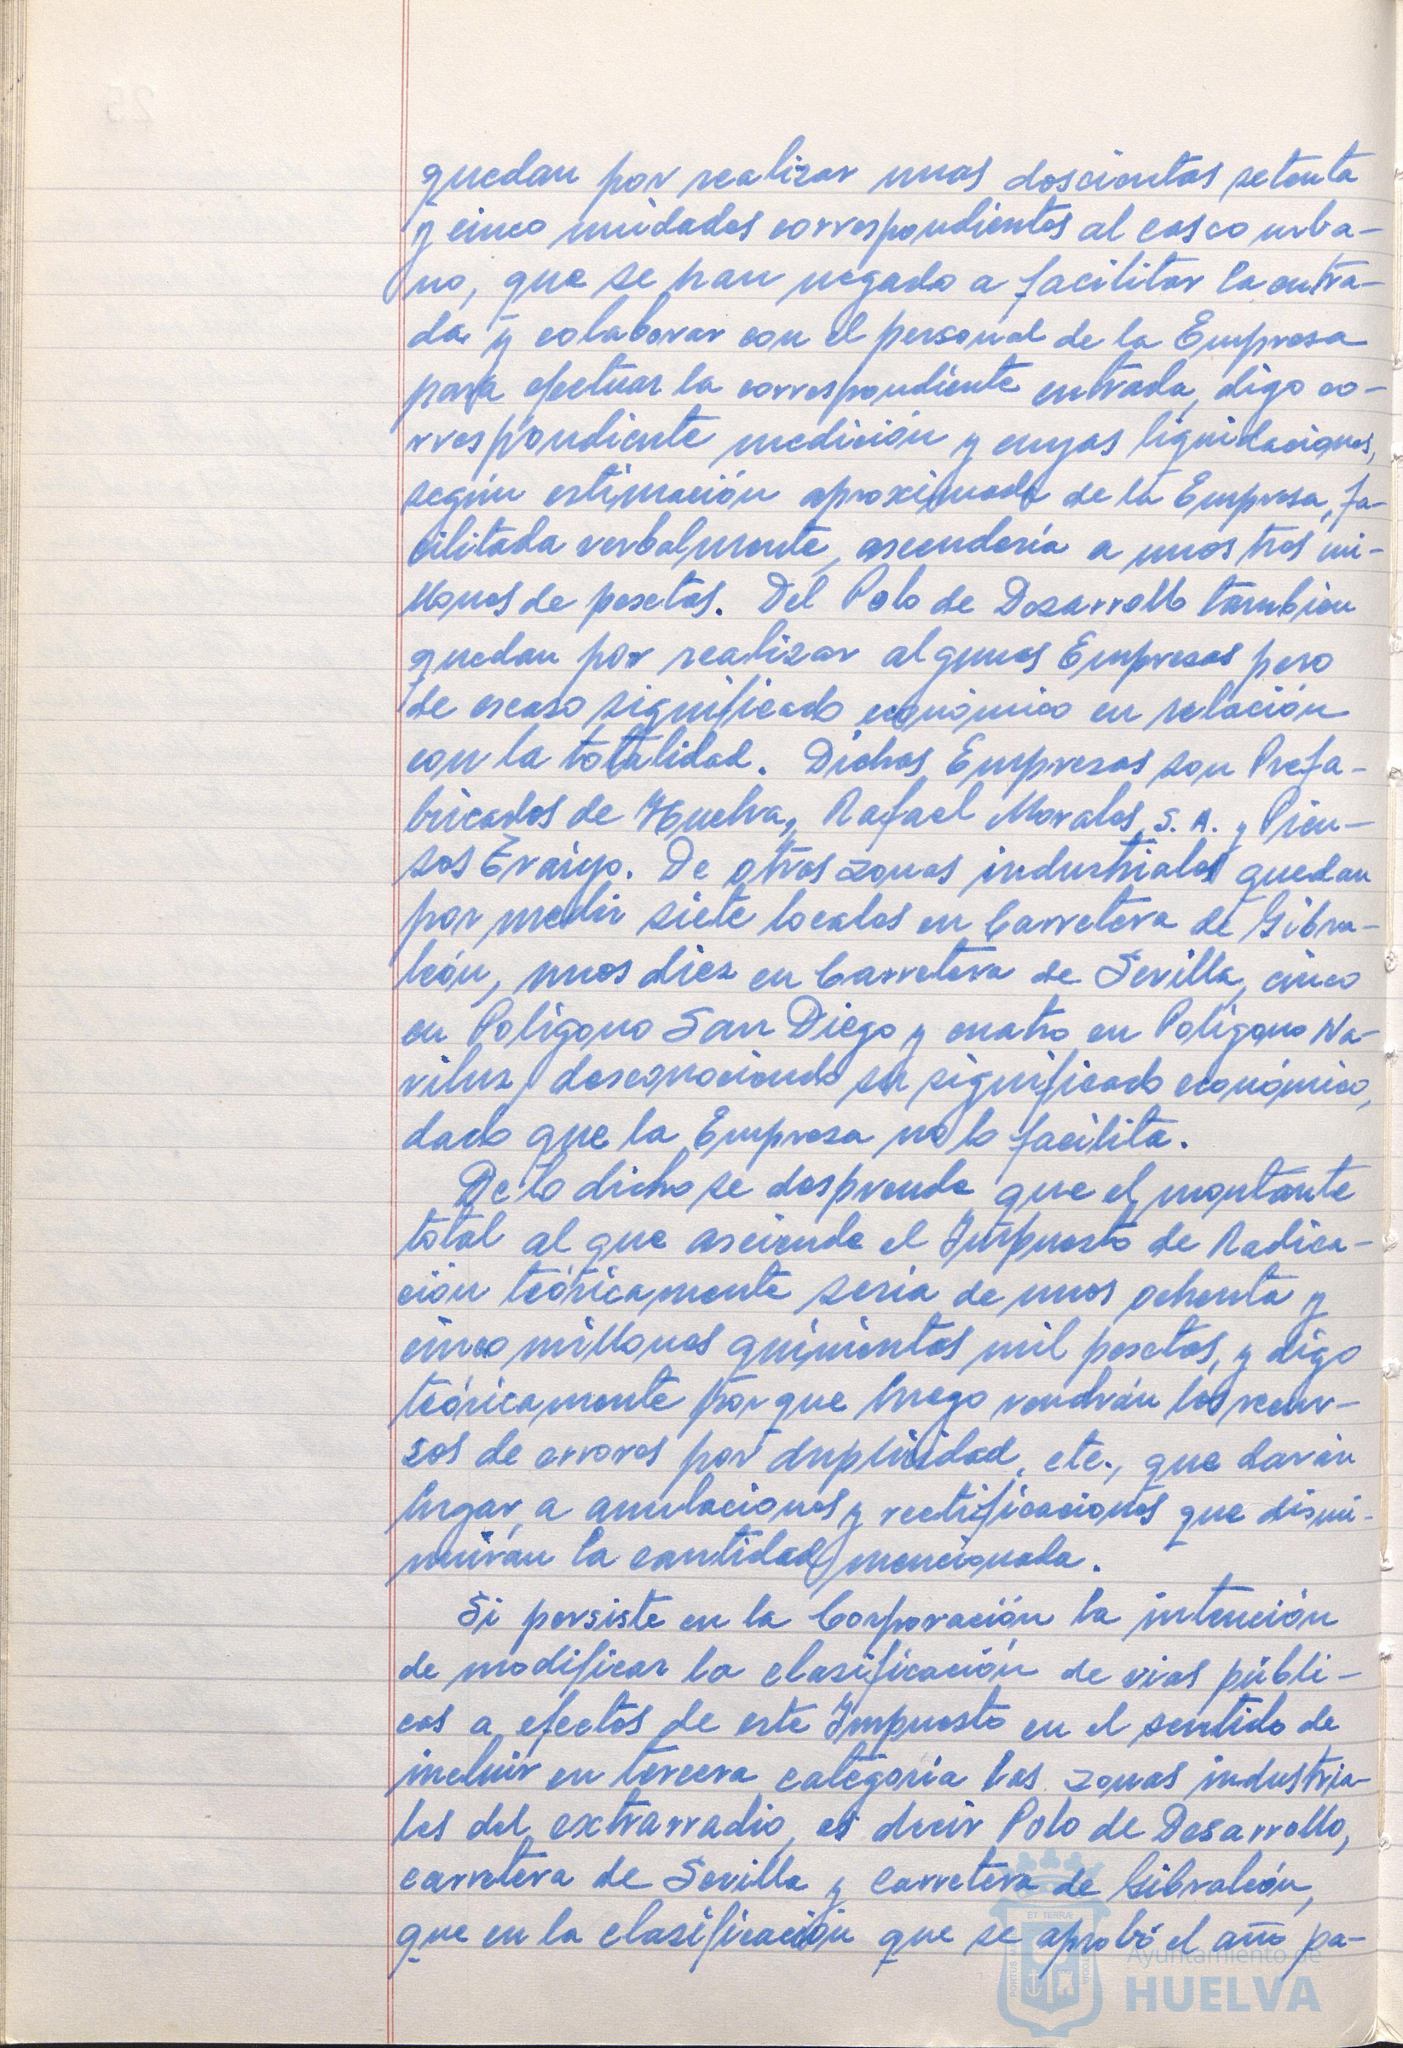 quedan por realizar unas doscientas setenta
y cinco unidades correspondientes al casco urba-
no, que se han negado a facilitar la entra-
da y colaborar con el personal de la Empresa
para efectuar la correspondiente entrada, digo co-
rrespondiente medición y cuyas liquidaciones,
según estimación aproximada de la Empresa, fa-
cilitada verbalmente, ascendería a unos tres mi-
llones de pesetas. Del Polo de Desarrollo tambien
quedan por realizar algunas Empresas pero
de escaso significado económico en relación
con la totalidad. Dichas Empresas son Prefa-
bricados de Huelva, Rafael Morales, S. A. y Pien-
sos Evaigo. De otras zonas industriales quedan
por medir siete locales en Carretera de Gibra-
león, unos diez en Carretera de Sevilla, cinco
en Polígono San Diego y cuatro en Polígono Na-
viluz, desconociendo su significado económico,
dado que la Empresa no lo facilita.
De lo dicho se desprende que el montante
total al que asciende el Impuesto de Radica-
ción teóricamente seria de unos ochenta y
cinco millones quinientas mil pesetas, y digo
teóricamente porque luego vendrán los recur-
sos de errores por duplicidad, etc., que darán
lugar a anulaciones y rectificaciones que dismi-
nuirán la cantidad mencionada.
Si persiste en la Corporación la intención
de modificar la clasificación de vias públi-
cas a efectos de este Impuesto en el sentido de
incluir en tercera categoría las zonas industria-
les del extrarradio, es decir Polo de Desarrollo,
carretera de Sevilla y carretera de Gibraleón,
que en la clasificación que se aprobó el año pa-
Ayuntamiento de
HUELVA